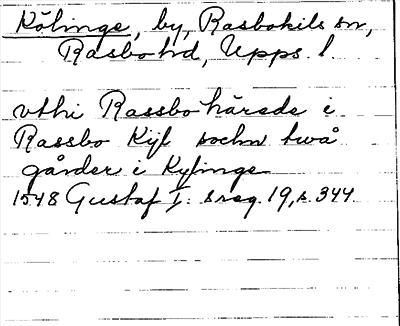 Kölinge, by, Rasbokils sn,
Rasbo hd, Upps. l.
vthi Rassbo härede i
Rassbo Kijl sochn twå
gårder i Kylinge
1548 Gustaf I:s reg. 19, s. 344.